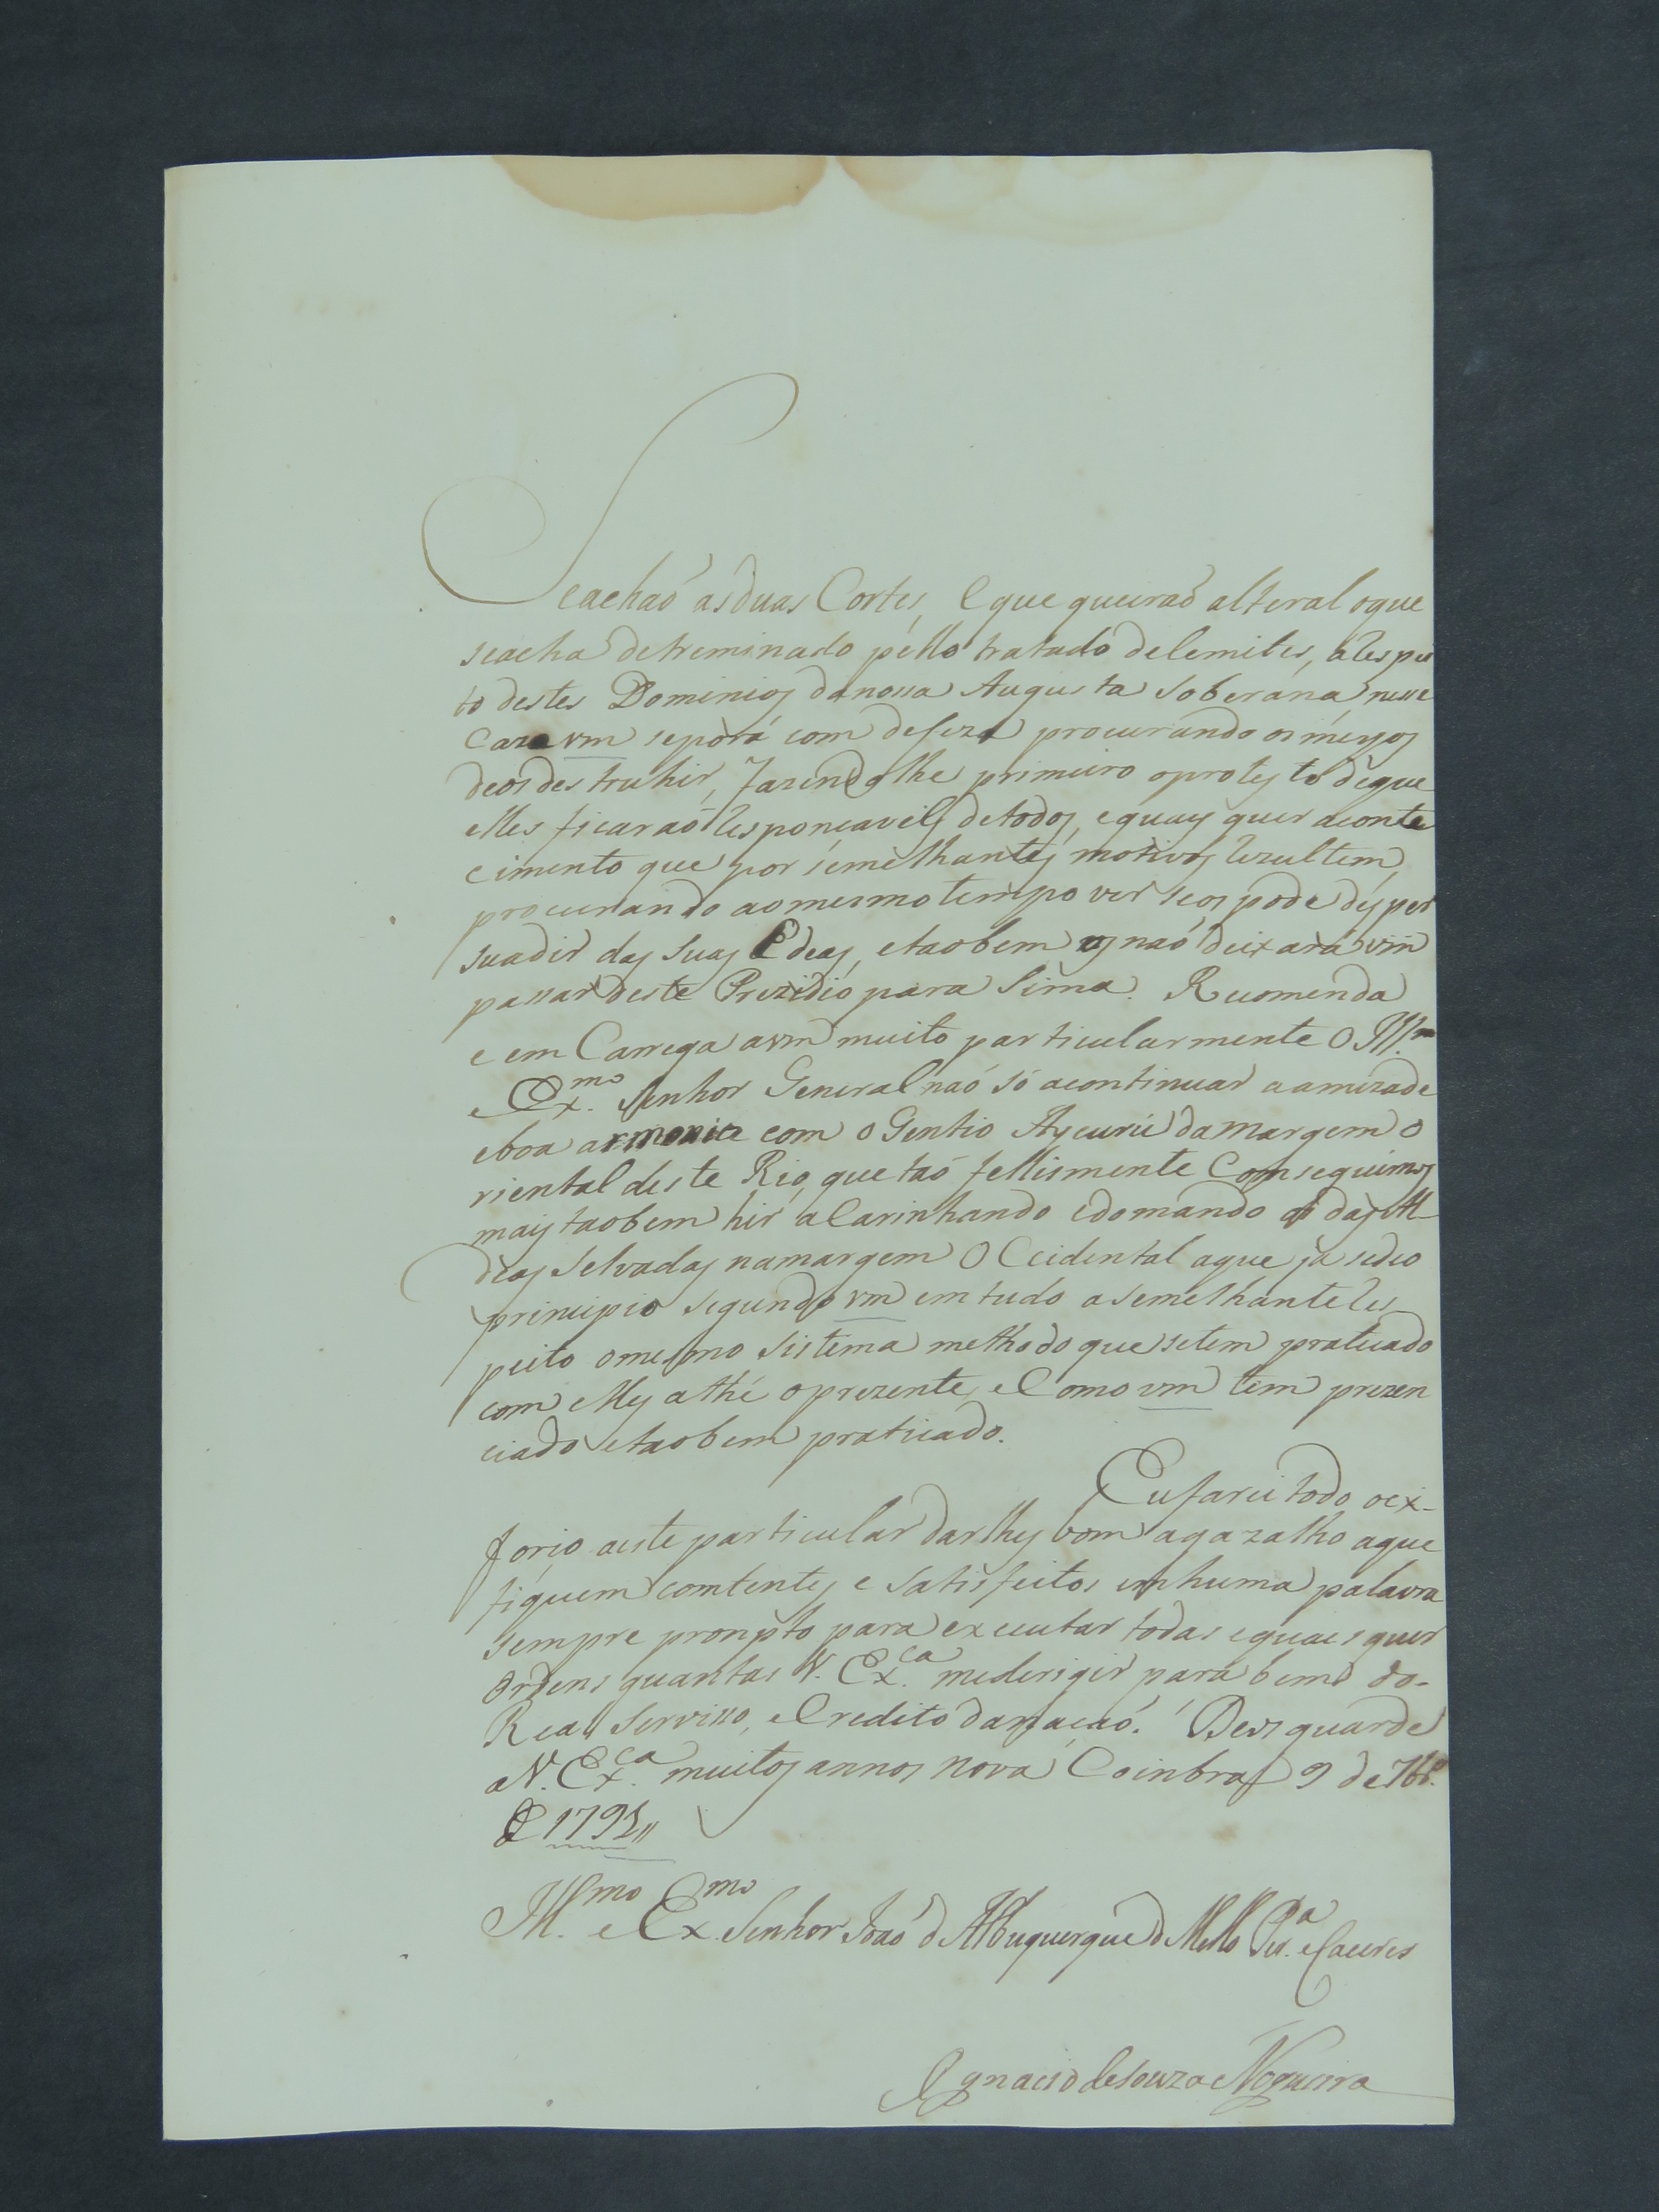 Seachaó as duas Cortes, e que queiraó alteral o que
seacha detreminado pello tratado delemites, a Respei
to destes Dominios danossa Augusta Soberana nesse
Cazo vm seporá com defeza procurando os meyos
deos destruhir, fazendolhe primeiro oprotesto deque
elles ficaraó Responçaveis detodos, equays quer aconte
cimento que por semelhantes motivos Rezultem,
procurando aomesmo tempo ver seos pode desper
suadir das suas Edeas, etaobem os naó deixará vm
passar deste Prezidio para Sima. Recomenda
e em Carrega avm muito particularmente O Ill.mo
e Ex.mo Senhor General naó só acontinuar a amizade
eboa armonia com o Gentio Aycurú damargem o
riental deste Rio, que taó fellismente Conseguimos
mays taobem hir aCarinhando edomando os das Al-
deas Selvadas namargem Occidental aque já sedeo
principio segundo vm emtudo asemelhante Res
peito omesmo Sistema methodo que setem praticado
com elles athé oprezente, eComo vm tem prezen
ciado etaobem praticado.
Eu farei todo oex-
forço aeste particular darlhes bom agazalho aque
fiquem comtentes e Satisfeitos emhuma palavra
sempre prompto para executar todas equaes quer
Ordens quantas V. Ex.ca mederigir para bem do-
Real Servisso, eCredito danaçaó. Deos guarde
aV. Ex.ca muitos annos nova Coinbra 9 de 7br.o
de 1792
Ill.mo e Ex.mo Senhor Joaó d Albuquerque d Mello Per.a eCaceres
Ignacio deSouza Nogueira